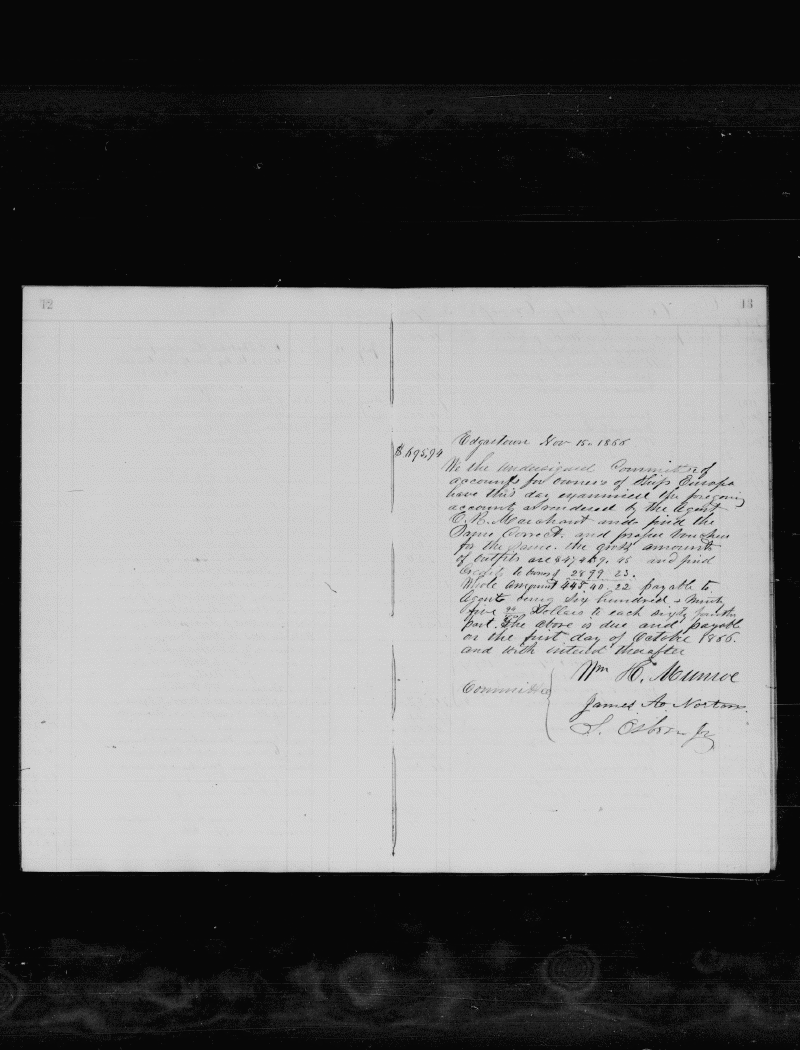 12
13
Edgartown Nov 15. 1866
$695,94
We the undersigned Committee of
accounts for owners of Ship Europa
have this day examined the foregoing
accounts as rendered by the Agent
C. B. Marchant and find the
same Correct. and proper vouchers
for the same. the gross amounts
of outfits are $47439.45 and find
Credits to owners 2899 23.
Whole amount 44540 22 payable to
Agent being Six hundred & ninety
five 94/100 Dollars to each sixty fourth
part. The above is due and payable
on the first day of October 1866.
and with interest thereafter
Wm H. Munroe
Committee
James A. Norton
S. Osborn Jr